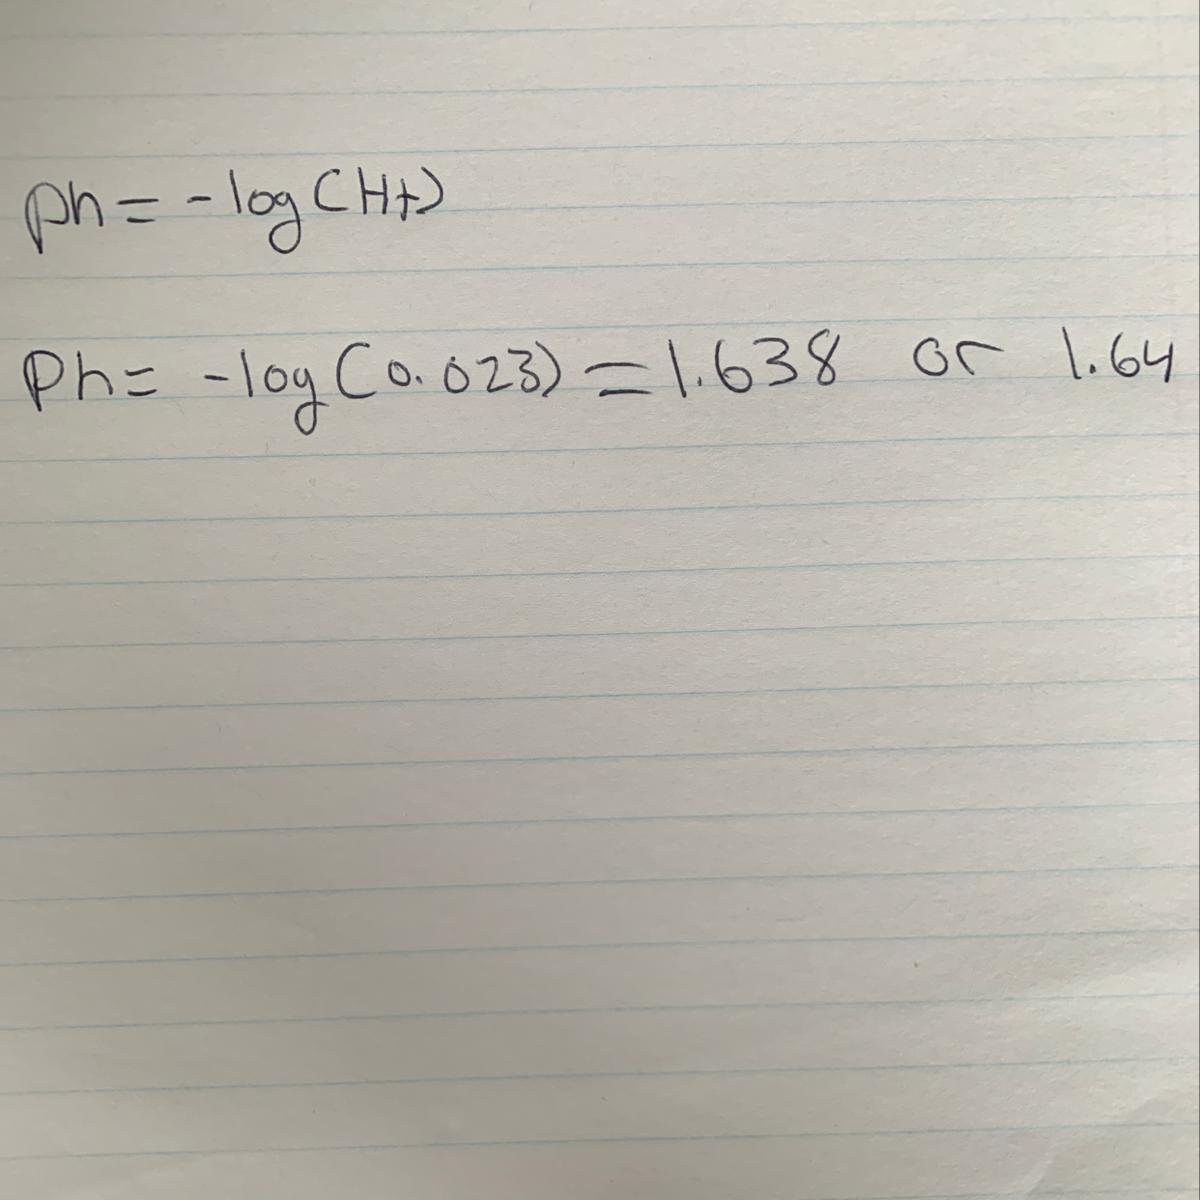 ph = -log(H+)
Ph = -log(0.023) = 1.638 or 1.64